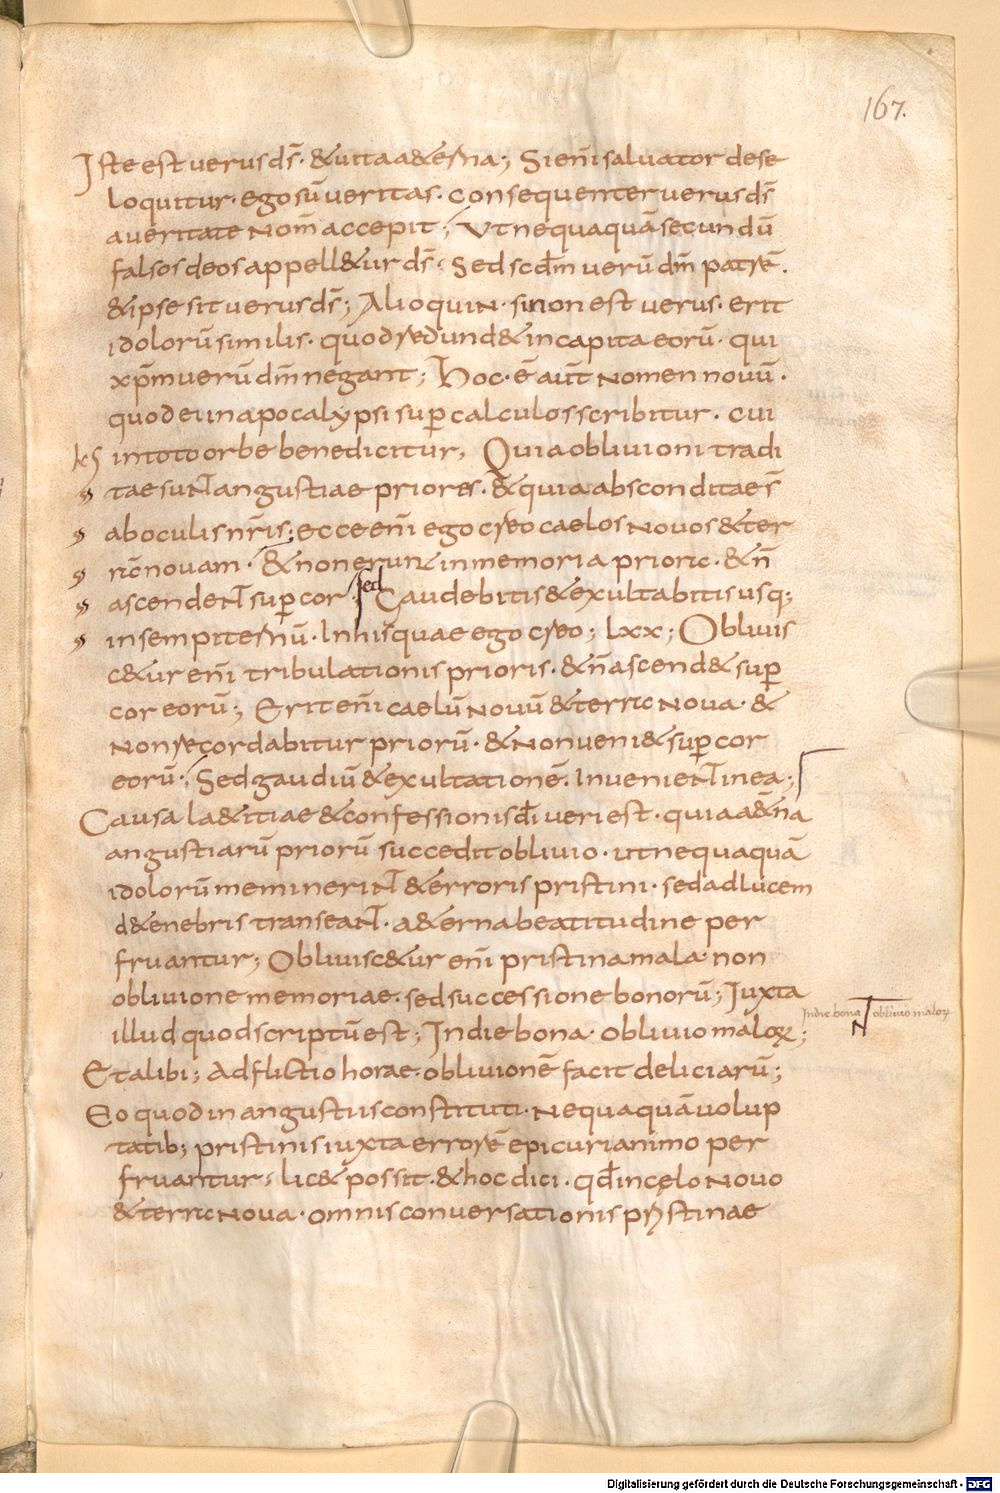 167.
Iste est verus ds̄. & uita a&erna; Si eni͂ saluator de se
loquitur. ego su͂ veritas. consequenter verus ds̄
a veritate nom͂ accepit; Ut nequaqua͂ secundu͂
falsos deos appell&ur ds̄. Sed scd̄m ueru͂ dm̄ patre͂.
& ipse sit verus ds̄; Alioquin. si non est verus. erit
idoloru͂ similis. quod redund& in capita eoru͂. qui
xp̄m ueru͂ dm̄ negant; Hoc. ē aut͂ nomen nouu͂.
quod ei in apocalypsi sup̲ calculos scribitur. cui
in toto orbe benedicitur, Quia obliuioni tradi
tae sunt angustiae priores. & quia absconditae s̄
ab oculis nr̄is; ecce eni͂ ego creo caelos novos & ter
ra͂ novam. & non erunt in memoria priora. & n̄
ascendent sup̲ cor. sed Gaudebitis & exultabitis usq;
in sempiternu͂. In his quae ego creo; lxx; Obliuis
c&ur eni͂ tribulationis prioris. & n̄ ascend& sup̲
cor eoru͂; Erit eni͂ caelu͂ nouu͂ & terra nova. &
non recordabitur prioru͂. & non veni& sup̲ cor
eoru͂. Sed gaudiu͂ & exultatione͂. Invenient in ea;
Causa la&itiae & confessionis dī veri est. quia a&n̄a
angustiaru͂ prioru͂ succedit oblivio. ut nequaqua͂
idoloru͂ meminerint & erroris pristini. sed ad lucem
d& enebris transeant. a&erna beatitudine per
fruantur; Obliuisc&ur eni͂ pristina mala. non
obliuione memoriae. sed successione bonoru͂; Iuxta
illud quod scriptu͂ est; In die bona. oblivio maloꝝ;
In die bona oblivio maloꝝ
Et alibi; Adflictio horae. oblivione͂ facit deliciaru͂;
Eo quod in angustiis constituti. nequaqua͂ uolup
tatib; pristinis iuxta errore͂ epicuri animo per
fruantur; lic& possit. & hoc dici. qd̄ in cęlo novo
& terra nova. omnis conversationis prystinae
Digitalisierung gefördert durch die Deutsche Forschungsgemeinschaft - DFG